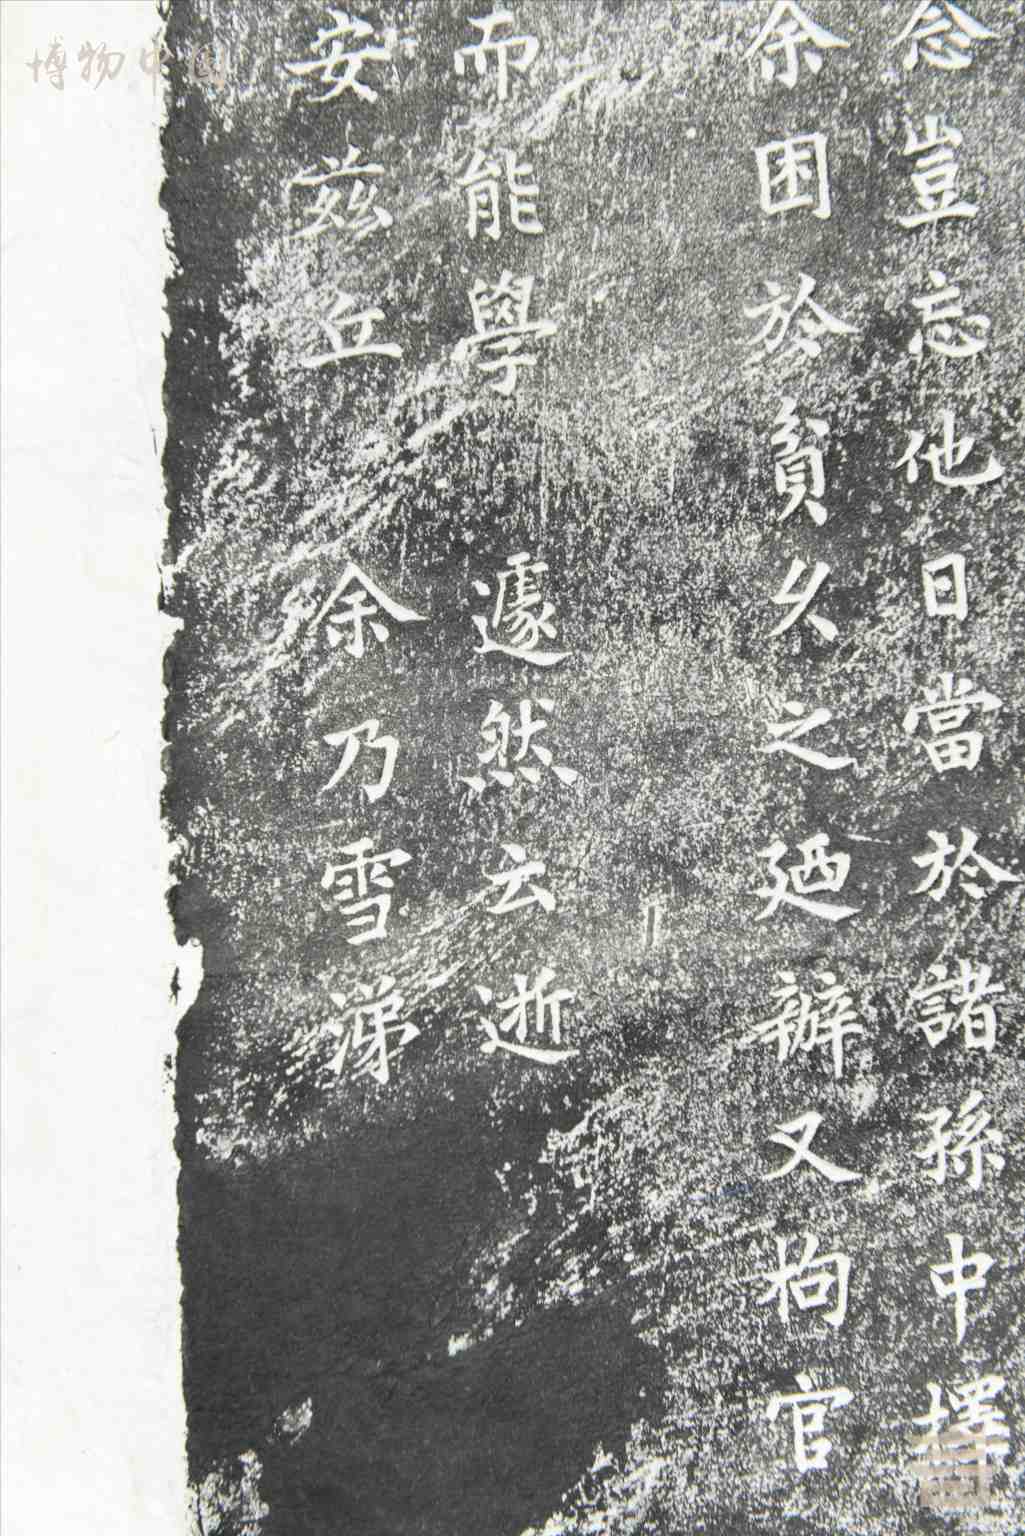 念豈忘他日當於諸孫中擇
余困於貧久之廼辦又拘官
而能學 遽然云逝
安茲丘 余乃雪涕
博物中国